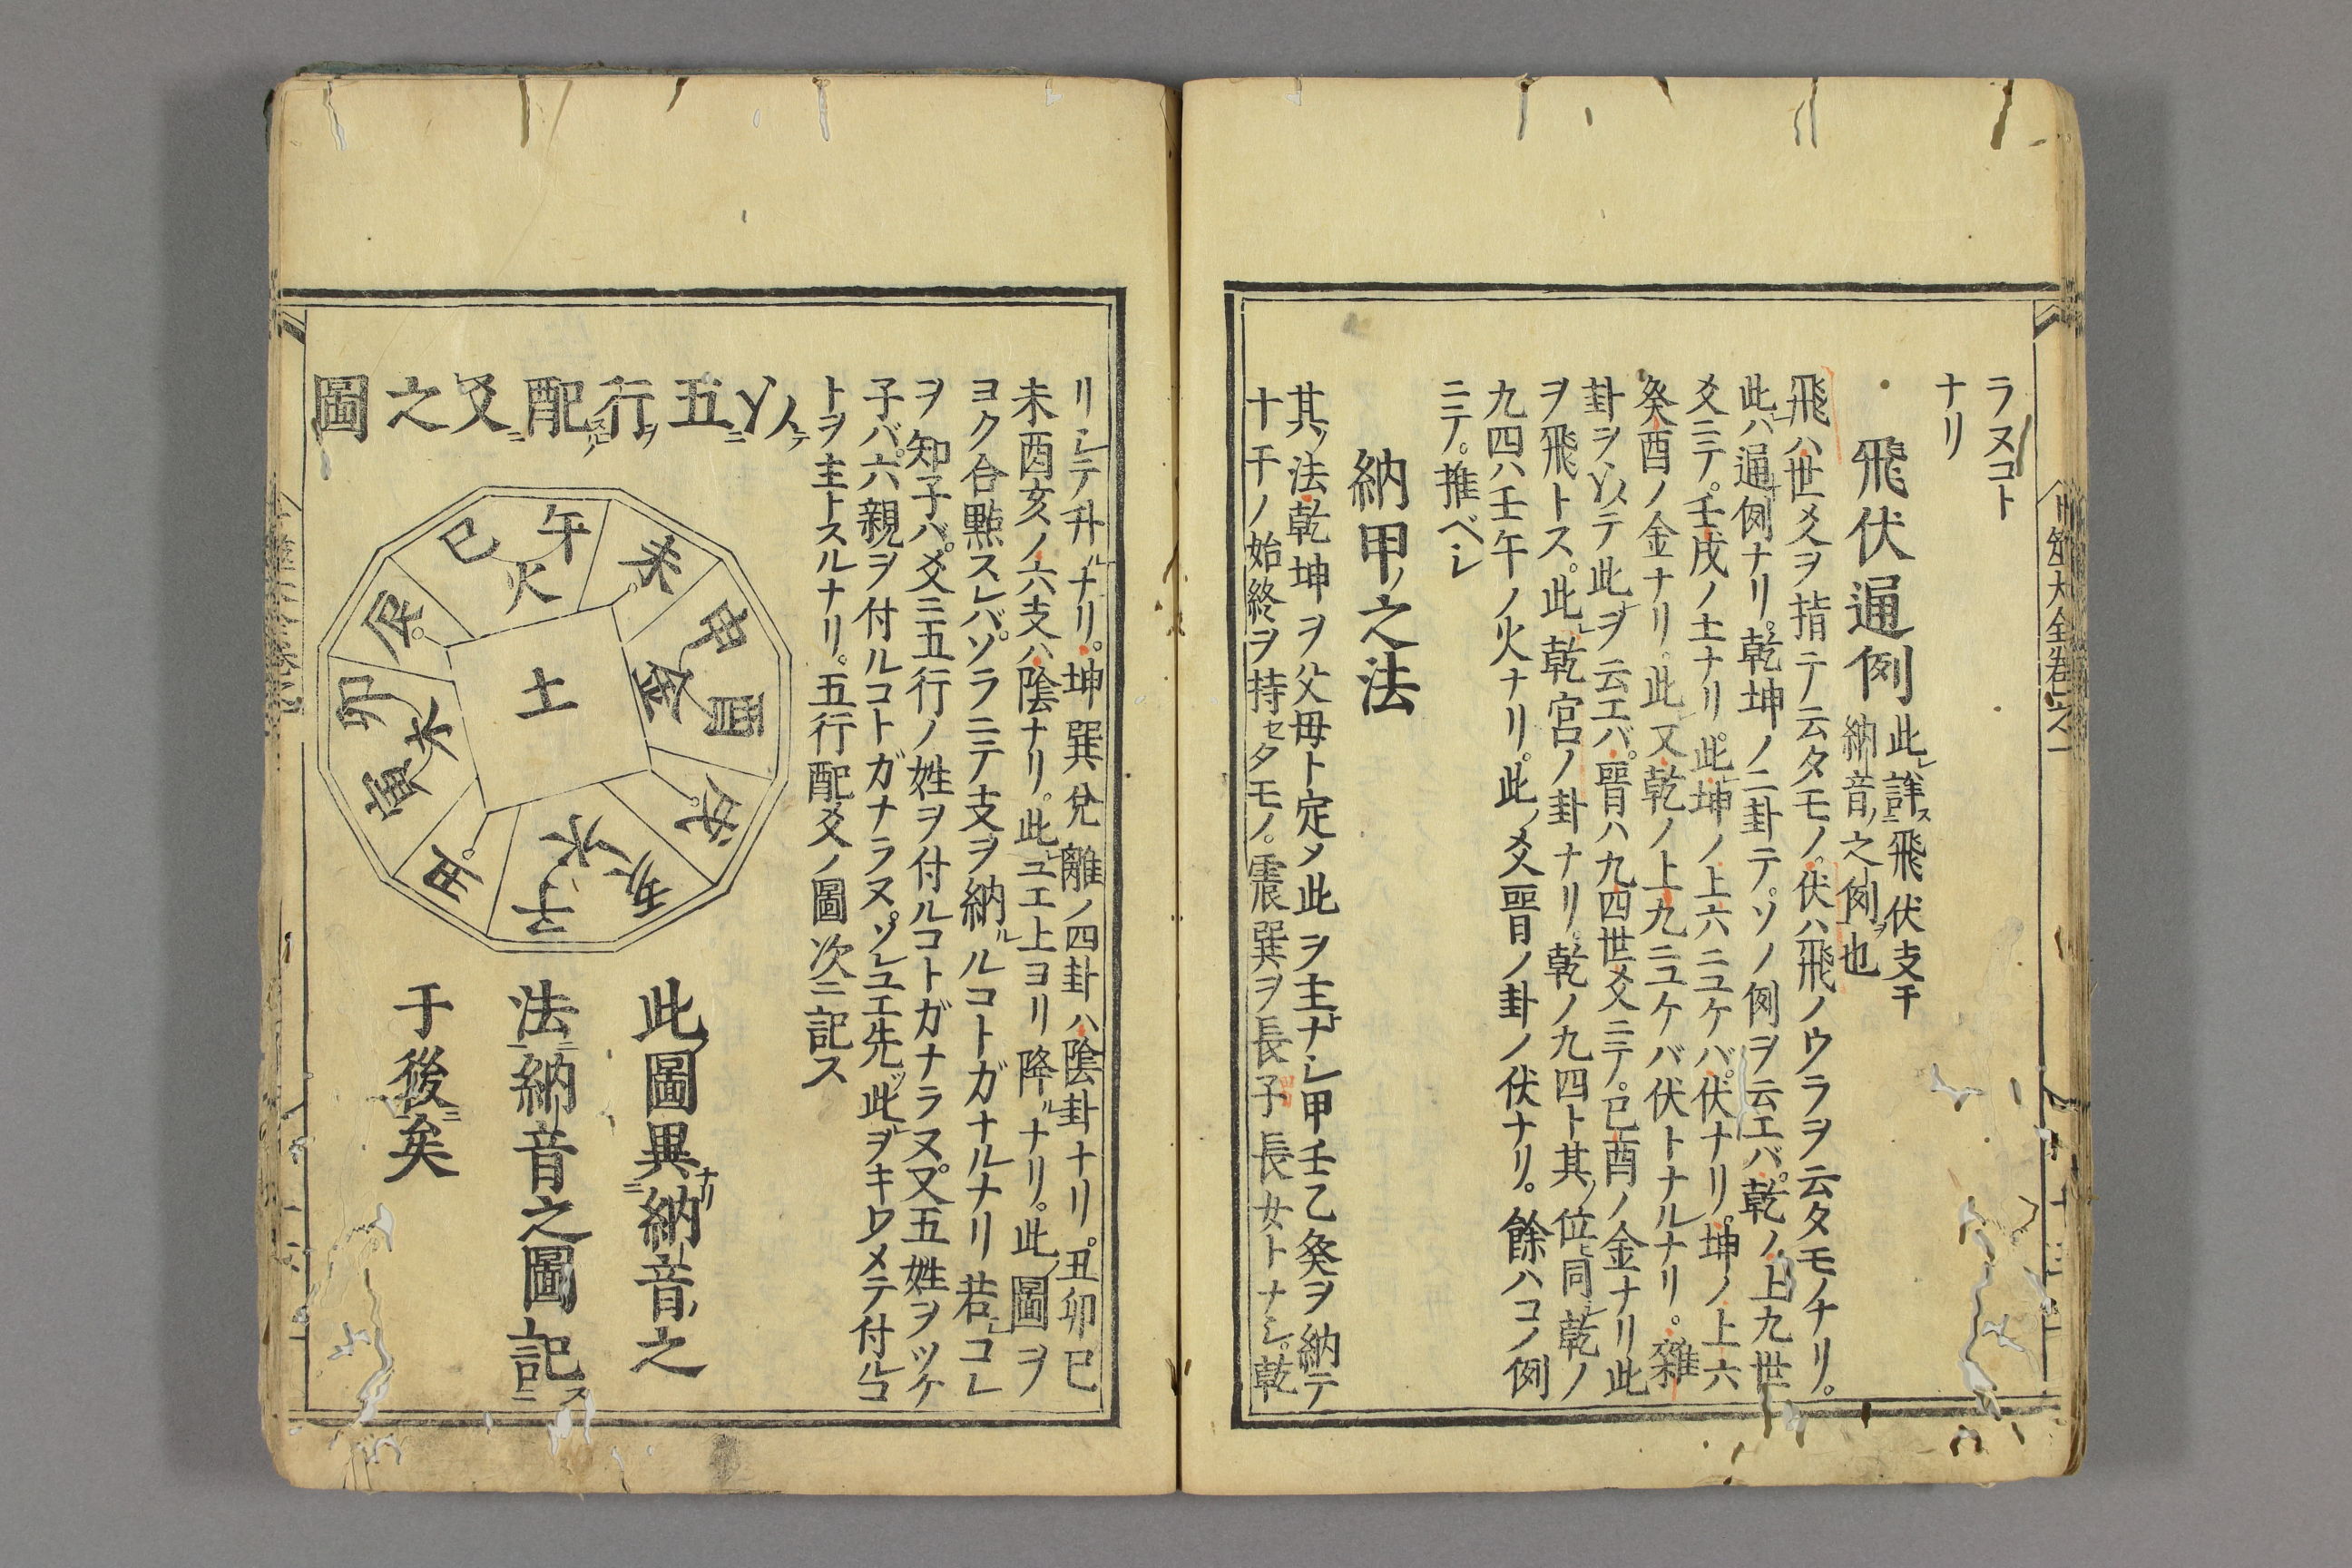 ラヌコト
ナリ
飛伏通例
此レ詳ニス飛伏支干
納音ノ之例ヲ也
飛ハ世爻ヲ指テ云タモノ。伏ハ飛ノウラヲ云タモノナリ。
此レハ通例ナリ。乾坤ノ二卦テ。ソノ例ヲ云エバ。乾ノ上九世
爻ニテ。壬戌ノ土ナリ。此レ坤ノ上六ニユケバ。伏ナリ。坤ノ上六
癸酉ノ金ナリ。此レ又乾ノ上九ニユケバ伏トナルナリ。雜
卦ヲ以テ此レヲ云エバ。晋ハ九四世爻ニテ。己酉ノ金ナリ此レ
ヲ飛トス。此レ乾宮ノ卦ナリ。乾ノ九四ト其ノ位同シ乾ノ
九四ハ壬午ノ火ナリ。此ノ爻晋ノ卦ノ伏ナリ。餘ハコノ例
ニテ。推ベシ
納甲ノ之法
其ノ法乾坤ヲ父母ト定メ此ヲ主ナシ甲壬乙癸ヲ納テ
十干ノ始終ヲ持セタモノ。震巽ヲ長子長女トナシ。乾
リシテ升ルナリ。坤巽兌離ノ四卦ハ陰卦ナリ。丑卯巳
未酉亥ノ六支ハ陰ナリ。此レユエ上ヨリ降ルナリ。此ノ圖ヲ
ヨク合點スレバ。ソラニテ支ヲ納ルルコトガナルナリ若シコレ
ヲ知子バ。爻ニ五行ノ姓ヲ付ルコトガナラヌ。又五姓ヲツケ
子バ。六親ヲ付ルコトガナラヌ。ソレユエ先ツ此レヲキワメテ付ルコ
トヲ主トスルナリ。五行配爻ノ圖次ニ記ス
以テ五行ヲ配スル爻ニ之圖
午
巳
火
未
申
酉
金
戌
亥
子
水
丑
寅
卯
木
辰
土
此ノ圖異ナリ納音ノ之
法ニ納音之圖記ス
于後ニ矣